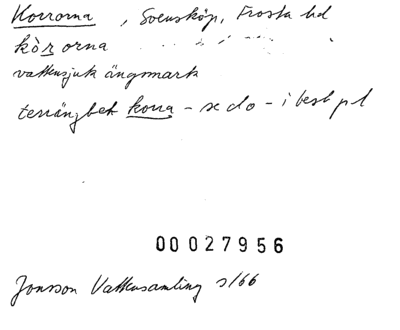 Korrorna, Svensköp, Frosta hd
kòr orna
vattensjuk ängsmark
terrängbet korra – se do – i best pl
00027956
Jonsson Vattensamling s/66